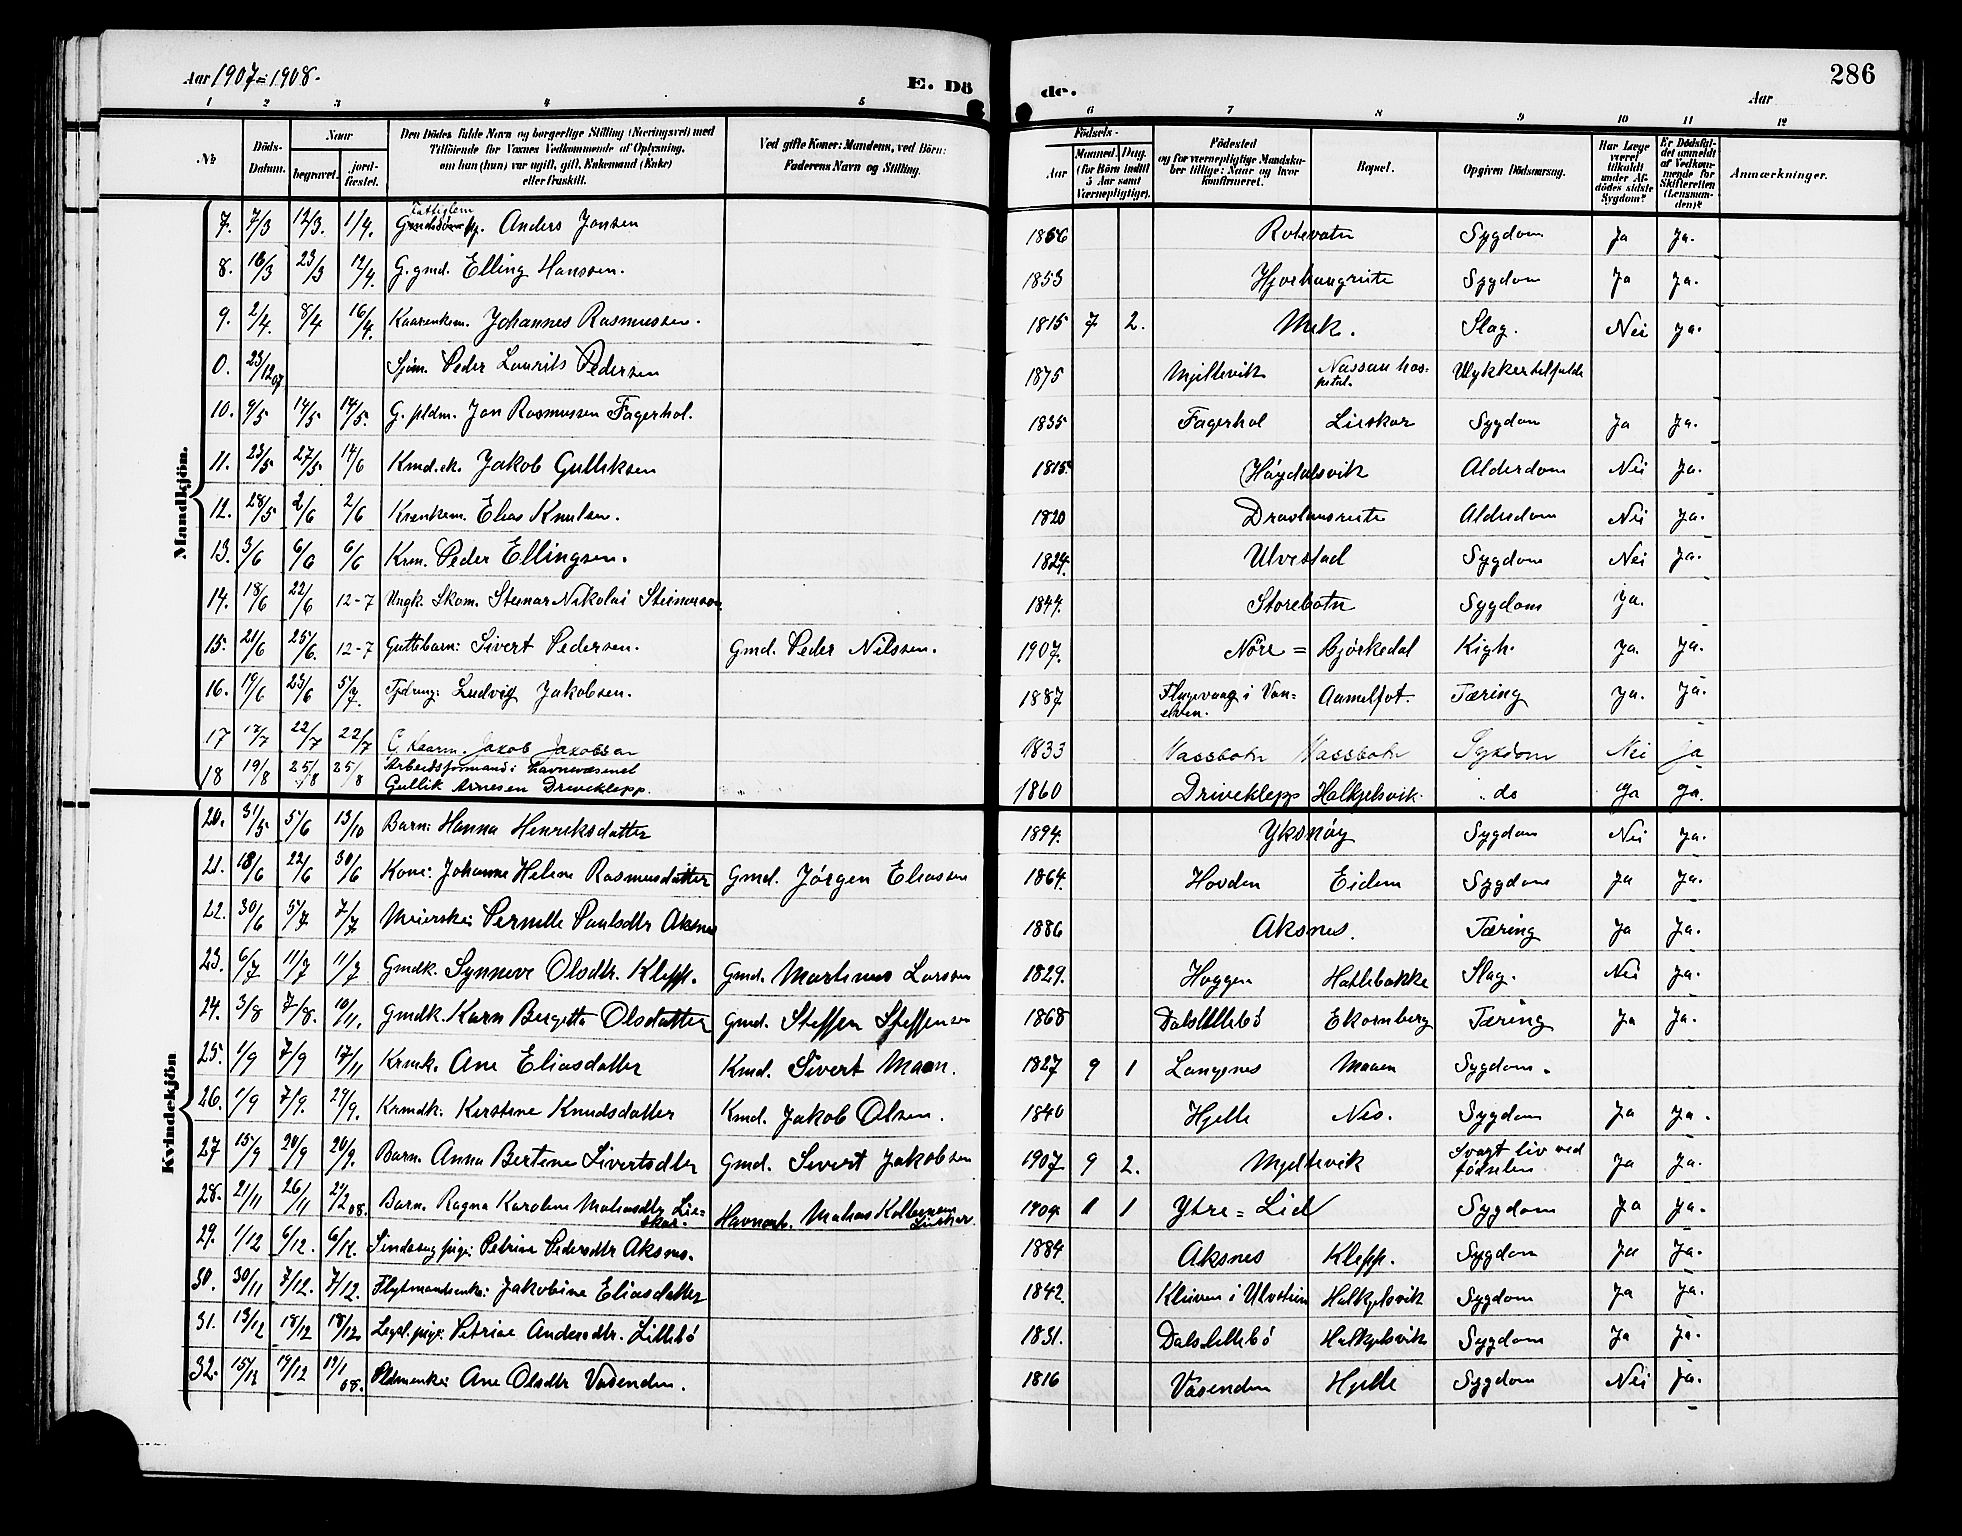 Aar 1907=1908.
E. Dö
de.
Aar
286
1 2 3 4 5
6 7 8 9 10 11 12
No
Döds-Datum.
Naar
begravet.
jordfæstet.
Den Dödes fulde Navn og borgerlige Stilling (Næringsvei) med Tilföiende for Voxnes Vedkommende af Oplysning, om han (hun) var ugift, gift, Enkemand (Enke) eller fraskilt.
Ved gifte Koner: Mandens, ved Börn: Faderens Navn og Stilling.
Födsels-
Aar
Maaned. Dag.
(for Börn indtil 5 Aar samt Værnepligtige).
Födested og for værnepligtige Mandskaber tillige: Naar og hvor konfirmeret.
Bopæl.
Opgiven Dödsaarsag.
Har Læge været tilkaldt under Afdödes sidste Sygdom?
Er Dödsfaldet anmeldt af Vedkommende for Skifteretten (Lensmanden)?
Anmærkninger.
Mandkjön.
7. 7/3 12/3. 1/4. Anders Jonsen 1856 Rotevatn Sygdom Ja Ja.
8. 16/3 23/3 12/4. G. gmd. Elling Hanssen. 1853 Sygdom Ja Ja.
9. 2/4. 8/4 16/4. Kaarenkem. Johannes Rasmussen. 1815 7 2. Mek. Slag. Nei Ja.
0. 23/12 07 Sjöm. Peder Laurits Pedersen 1875 Mjeltevik Nassau hospital. Ulykkestilfælde
10. 9/5 14/5 14/5. G. pldm. Jon Rasmussen Fagerhol. 1835 Fagerhol Lieskar Sygdom Ja Ja.
11. 23/5 27/5 14/6 Kmd.ek. Jakob Gulliksen 1815. Höydalsvik Alderdom Nei Ja.
12. 28/5 2/6 2/6 Krenkem. Elias Knutsen. 1820 Alderdom Nei Ja.
13. 3/6 6/6 6/6 Krm. Peder Ellingsen. 1824. Ulvestad Sygdom Nei Ja.
14. 18/6 22/6 12-7 Ungk. Skom. Steinar Nikolai Steinarson 1847. Storebotn Sygdom Ja.
15. 21/6 25/6. 12-7 Guttebarn: Sivert Pedersen. Gmd. Peder Nilssen. 1907. Nöre = Björkedal Kigh. Ja. Ja.
16. 19/6 23/6 5/7. Ludvig Jakobsen. 1887 i Vanelven. Aamelfot. Tæring Ja. Ja.
17 17/7 22/7 22/7 G. Kaarm. Jakob Jakobsen 1833 Vassbotn Vassbotn Sykdom Nei Ja
18 19/8 25/8 25/8 Arbeidsformand i Havnevæsenet
Gullik Arnesen Driveklepp. 1860 Driveklepp Halkjelsvik do Ja Ja.
Kvindekjön
20. 31/5 5/6 13/10 Barn: Hanna Henriksdatter 1894. Yksnöy Sygdom Nei Ja.
21. 18/6 22/6 30/6 Kone: Johanne Helene Rasmusdatter Gmd. Jörgen Eliassen 1864. Hovden Eidem Sygdom Ja Ja.
22. 30/6 5/7 7/7 Meierske: Pernille Paulsdtr Aksnes 1886 Aksnes. Tæring Ja Ja.
23. 6/7 11/7 11/7 Gmdk. Synneve Olsdtr. Klepp. Gmd. Martinus Larssen 1829. Haggen Hatlebakke Slag. Nei Ja.
24. 3/8 7/8. 10/11. Gmdk. Karn Bergitta Olsdatter Gmd. Steffen Steffensen 1868 Dalslillebö Ekornberg Tæring Ja Ja.
25. 1/9 7/9 17/11 Krmk. Ane Eliasdatter Kmd. Sivert Maan. 1827 9 1 Langenes Maaen Sygdom.
26. 1/9 7/9. 29/9. Krmdk: Kerstine Knudsdatter Kmd. Jakob Olsen. 1840 Hjelle Nes. Sygdom Ja Ja.
27 15/9 20/9 20/9. Barn. Anna Bertine Sivertsdtr Gmd. Sivert Jakobsen 1907 9 2. Mjeltevik Svagt liv ved födselen. Ja Ja.
28. 21/11 26/11 2/2 08. Barn. Ragna Karoline Matiasdtr Lieskar. Havnearb. Matias Kolbeinsen Lieskar. 1904 1 1 Ytre = Lid Sygdom Ja Ja.
29. 1/12 6/12. 6/12. Sindssyg pige: Petrine Pedersdtr Aksnes. 1884 Aksnes Klepp. Sygdom Ja Ja.
30. 30/11 7/12. 7/12. Flytmandsenke: Jakobine Eliasdatter 1842. Kleiven i Ulvstein Halkjelsvik Sygdom Ja Ja.
31. 13/12 18/12 18/12 Legd. pige: Petrine Andersdtr. Lillebö 1831. Dalslillebö Halkjelsvik Sygdom Ja Ja.
32. 15/12 19/12 19/1 08. Pldmenke: Ane Olsdtr Vasenden. 1816 Vasenden Hjelle Sygdom Nei Ja.